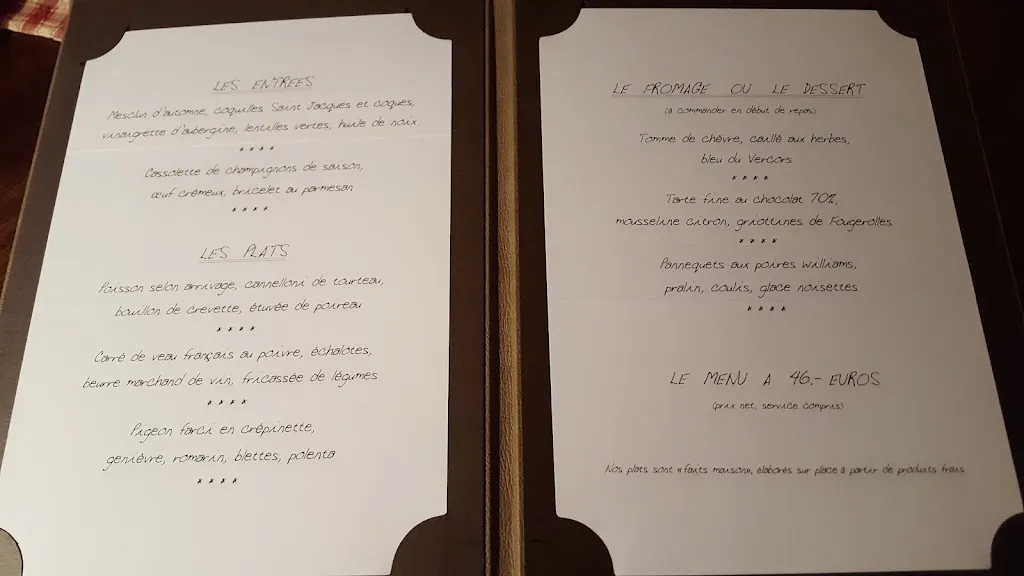 LES ENTREES
Mesclun d'automne, coquilles Saint Jacques et coques,
vinaigrette d'aubergine, lentilles vertes, huile de noix
****
Cassolette de champignons de saison,
œuf crémeux, bricelet au parmesan
****
LES PLATS
Poisson selon arrivage, cannelloni de tourteau,
bouillon de crevette, étuvée de poireau
****
Carré de veau français au poivre, échalotes,
beurre marchand de vin, fricassée de légumes
****
Pigeon farci en crépinette,
genièvre, romarin, blettes, polenta
****
LE FROMAGE OU LE DESSERT
(à commander en début de repas)
Tomme de chèvre, caillé aux herbes,
bleu du Vercors
****
Tarte fine au chocolat 70%,
mousseline citron, griottines de Fougerolles
****
Pannequets aux poires williams,
pralin, coulis, glace noisettes
****
LE MENU A 46.- EUROS
(prix net, service compris)
Nos plats sont «faits maison», élaborés sur place à partir de produits frais